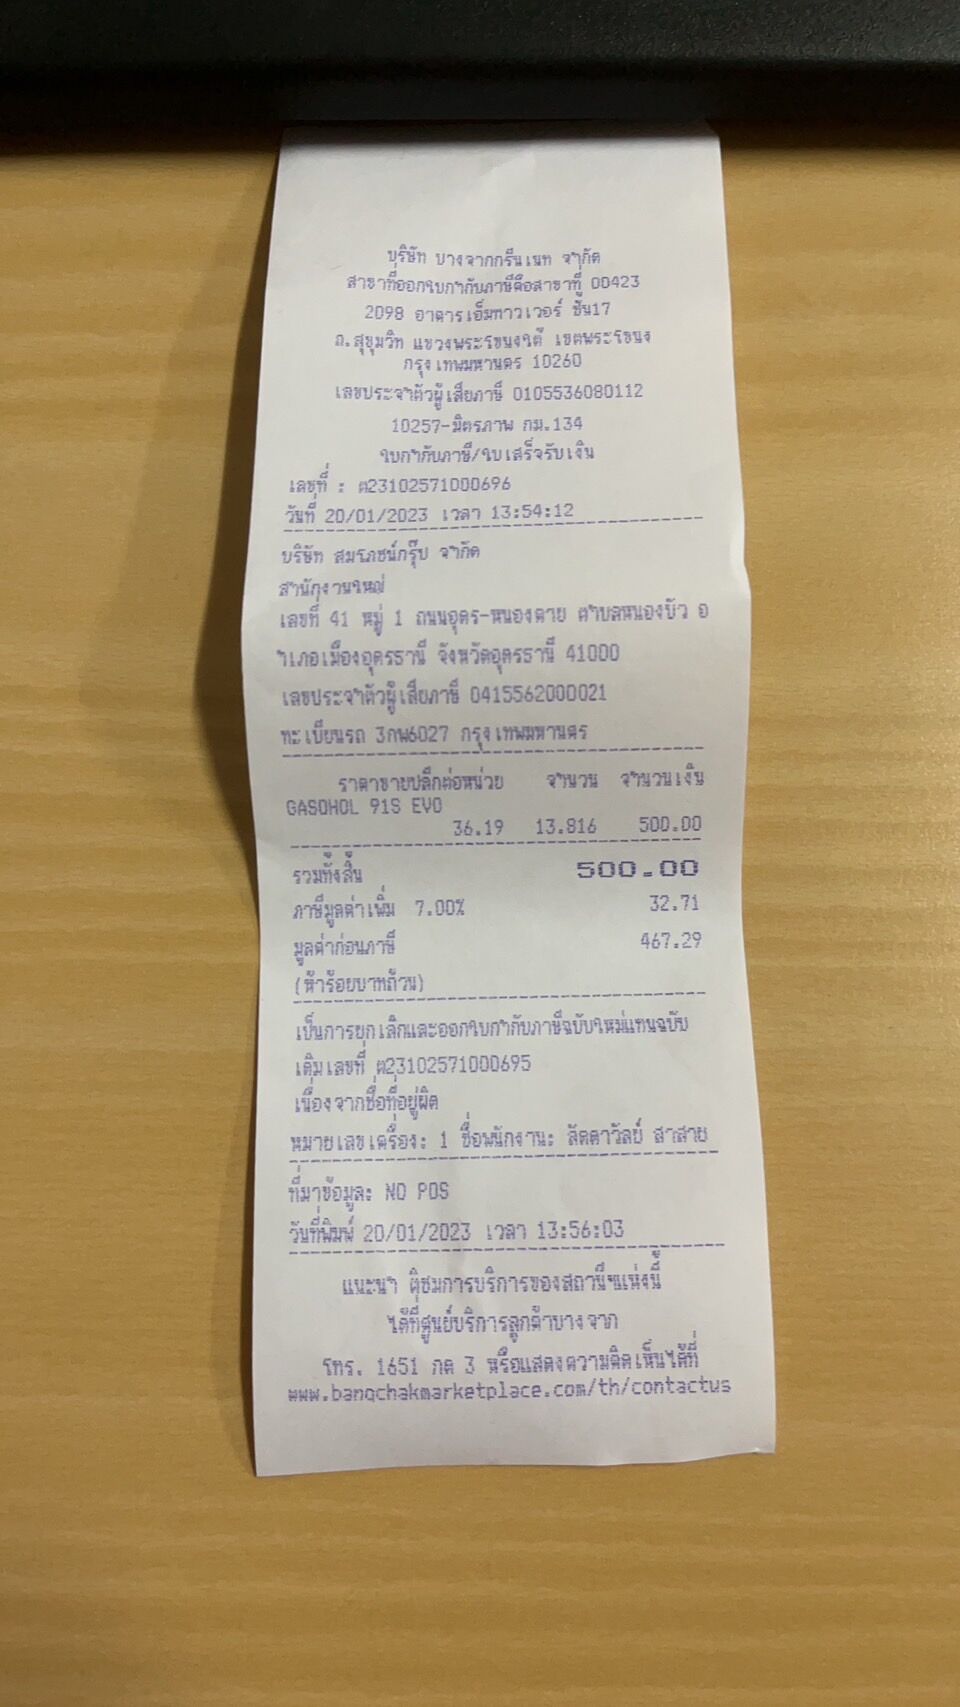 บริษัท บางจากกรีนเนท จำกัด
สาขาที่ออกใบกำกับภาษีคือสาขาที่ 00423
2098 อาคารเอ็มทาวเวอร์ ชั้น17
ถ.สุขุมวิท แขวงพระโขนงใต้ เขตพระโขนง
กรุงเทพมหานคร 10260
เลขประจำตัวผู้เสียภาษี 0105536080112
10257-มิตรภาพ กม.134
ใบกำกับภาษี/ใบเสร็จรับเงิน
เลขที่ : ต23102571000696
วันที่ 20/01/2023 เวลา 13:54:12
บริษัท สมโภชน์กรุ๊ป จำกัด
สำนักงานใหญ่
เลขที่ 41 หมู่ 1 ถนนอุดร-หนองคาย ตำบลหนองบัว อ
ำเภอเมืองอุดรธานี จังหวัดอุดรธานี 41000
เลขประจำตัวผู้เสียภาษี 0415562000021
ทะเบียนรถ 3กพ6027 กรุงเทพมหานคร
ราคาขายปลีกต่อหน่วย จำนวน จำนวนเงิน
GASOHOL 91S EVO
36.19 13.816 500.00
รวมทั้งสิ้น 500.00
ภาษีมูลค่าเพิ่ม 7.00% 32.71
มูลค่าก่อนภาษี 467.29
(ห้าร้อยบาทถ้วน)
เป็นการยกเลิกและออกใบกำกับภาษีฉบับใหม่แทนฉบับ
เดิมเลขที่ ต23102571000695
เนื่องจากชื่อที่อยู่ผิด
หมายเลขเครื่อง: 1 ชื่อพนักงาน: ลัดดาวัลย์ สาสาย
ที่มาข้อมูล: NO POS
วันที่พิมพ์ 20/01/2023 เวลา 13:56:03
แนะนำ ติชมการบริการของสถานีฯแห่งนี้
ได้ที่ศูนย์บริการลูกค้าบางจาก
โทร. 1651 กด 3 หรือแสดงความคิดเห็นได้ที่
www.bangchakmarketplace.com/th/contactus